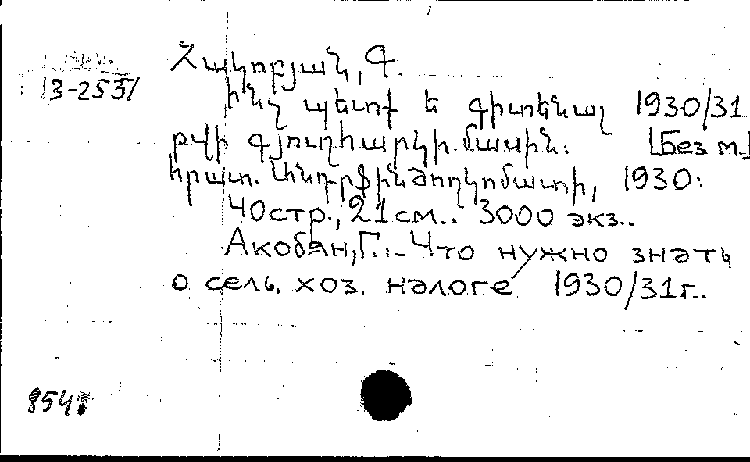 Հակոբյան, Գ.
13-2551
ինչ պետք է գիտենալ 1930/31
թվի գյուղհարկի մասին. [Без м.]
հրատ. 1930.
40стр., 21см.. 3000 экз..
Акобян, Г. - Что нужно знать
о сель. хоз. налоге 1930/31г..
8548